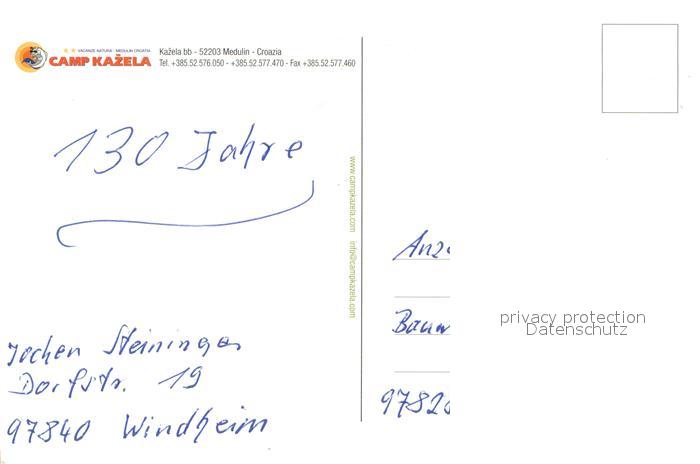 ★★ VACANZE NATURA - MEDULIN CROATIA
CAMP KAŽELA
Kažela bb - 52203 Medulin - Croazia
Tel. +385.52.576.050 - +385.52.577.470 - Fax +385.52.577.460
130 Jahre
www.campkazela.com info@campkazela.com
Jochen Steininger
Dorfstr. 19
97840 Windheim
Anz
Bauw
97828
privacy protection
Datenschutz